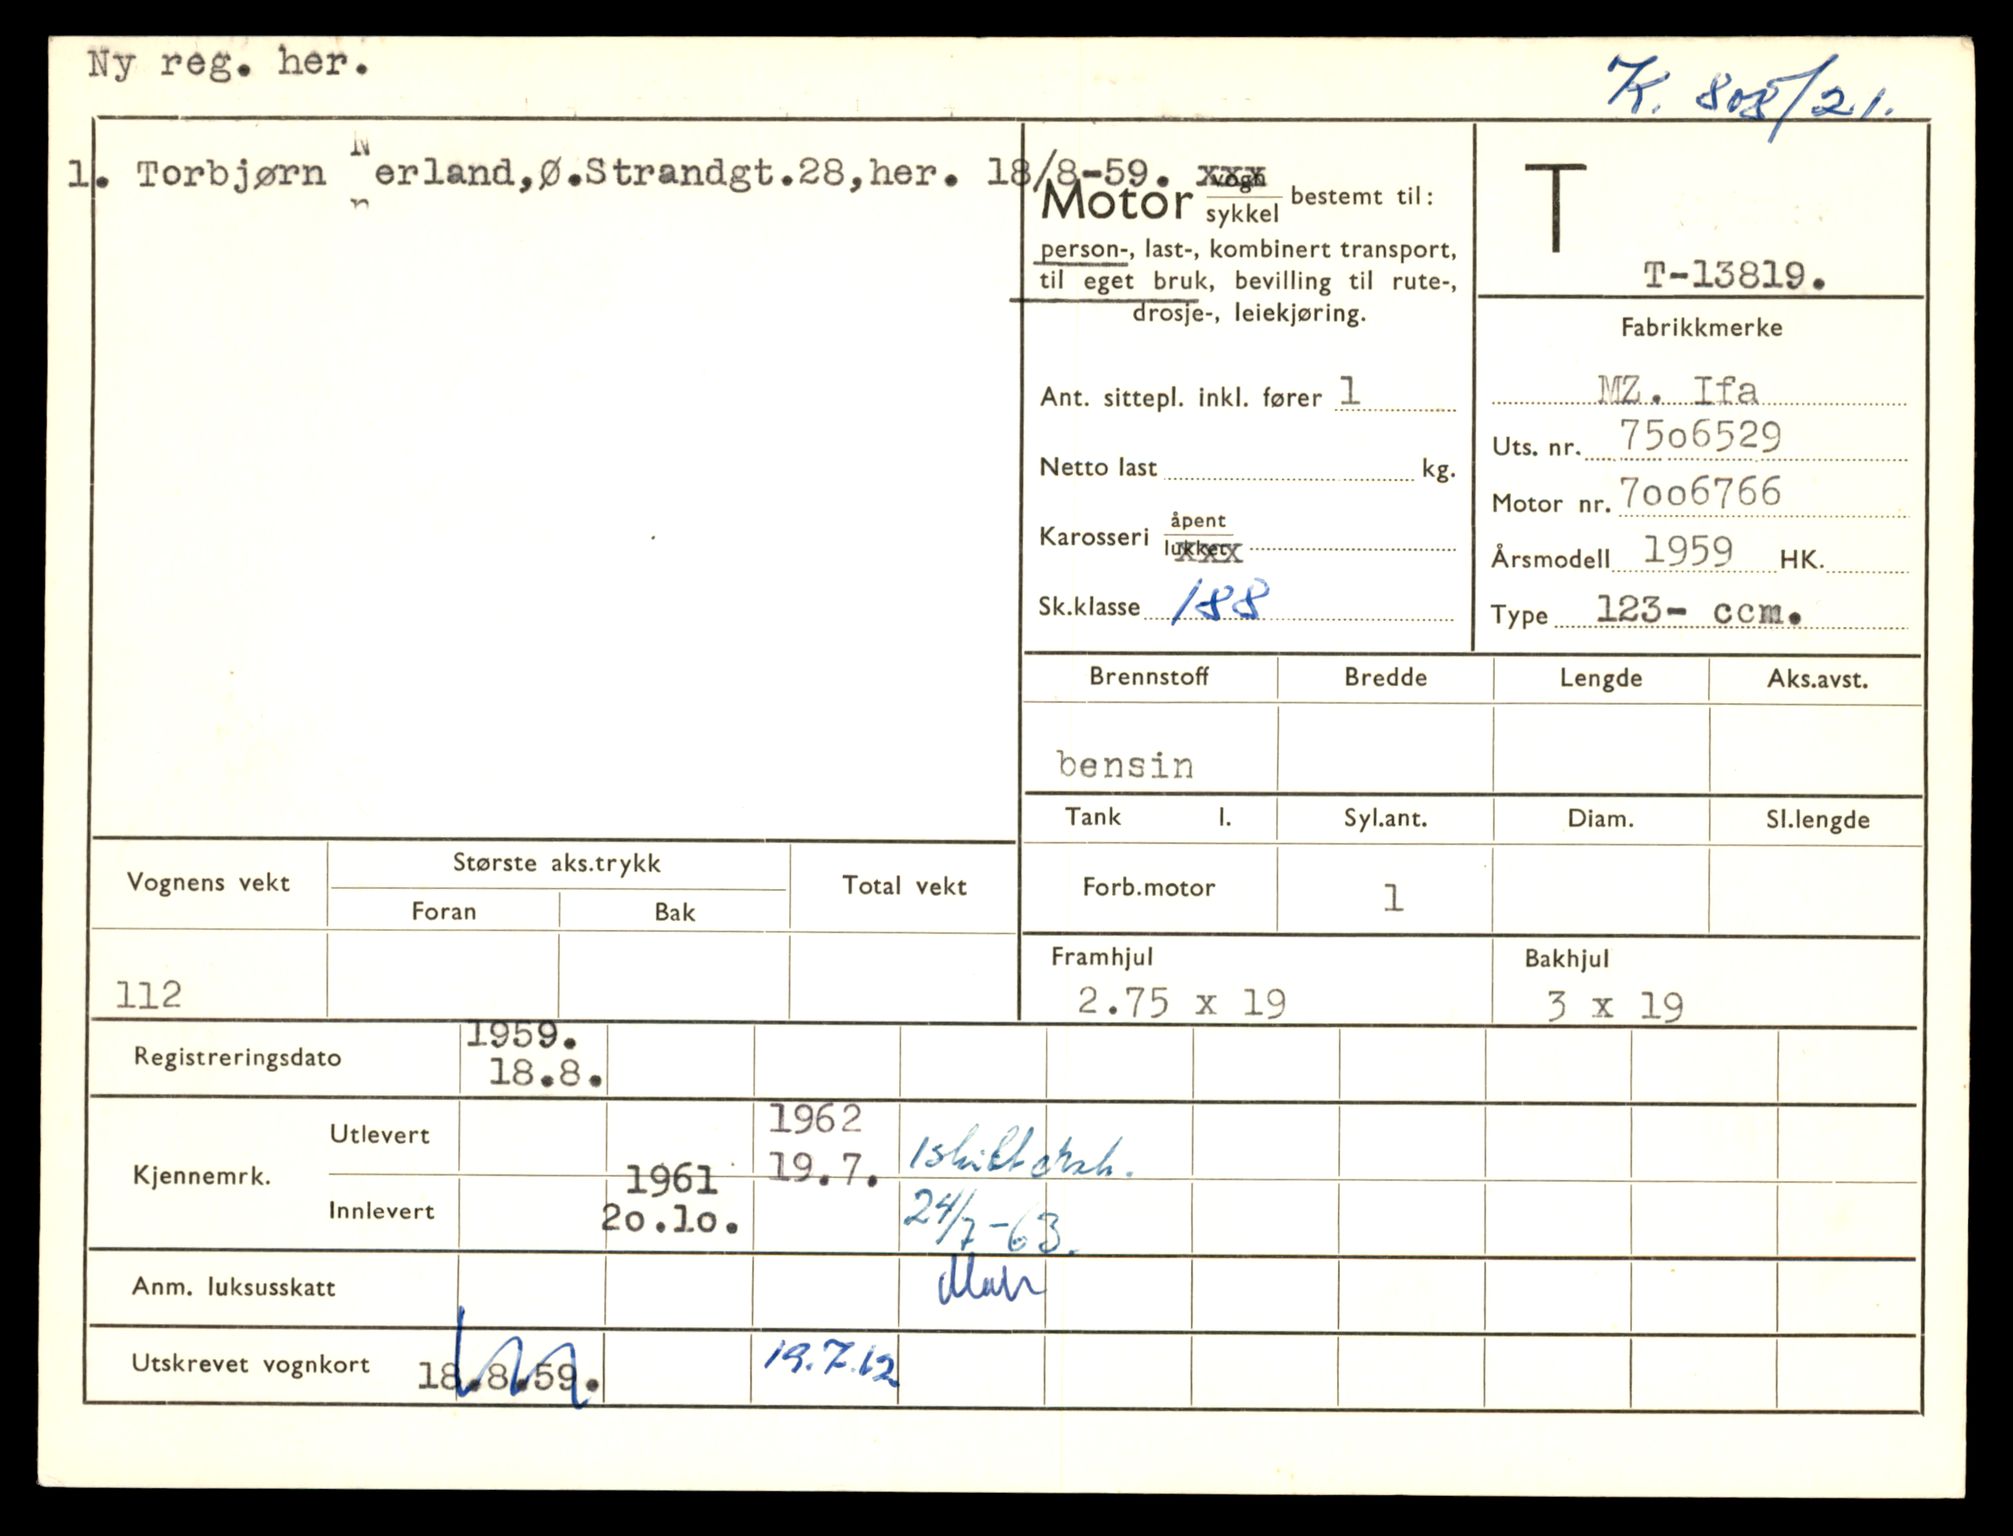 Ny reg. her.
K. 808/21.
1. Torbjørn Nerland,Ø.Strandgt.28,her. 18/8-59. xxx
Motor vogn sykkel bestemt til:
person-, last-, kombinert transport,
til eget bruk, bevilling til rute-,
drosje-, leiekjøring.
Ant. sittepl. inkl. fører 1
Netto last kg.
Karosseri åpent lukket xxx
Sk.klasse 188
T
T-13819.
Fabrikkmerke
MZ. Ifa
Uts. nr. 75o6529
Motor nr. 7oo6766
Årsmodell 1959 HK.
Type 123- ccm.
Brennstoff Bredde Lengde Aks.avst.
bensin
Tank l. Syl.ant. Diam. Sl.lengde
Forb.motor 1
Framhjul Bakhjul
2.75 x 19 3 x 19
Vognens vekt Største aks.trykk Total vekt
Foran Bak
112
Registreringsdato 1959.
18.8.
Kjennemrk.
Utlevert 1962
19.7. 1 skilt
Innlevert 1961
2o.1o. 24/7-63.
Anm. luksusskatt
Utskrevet vognkort 18.8.59. 19.7.62